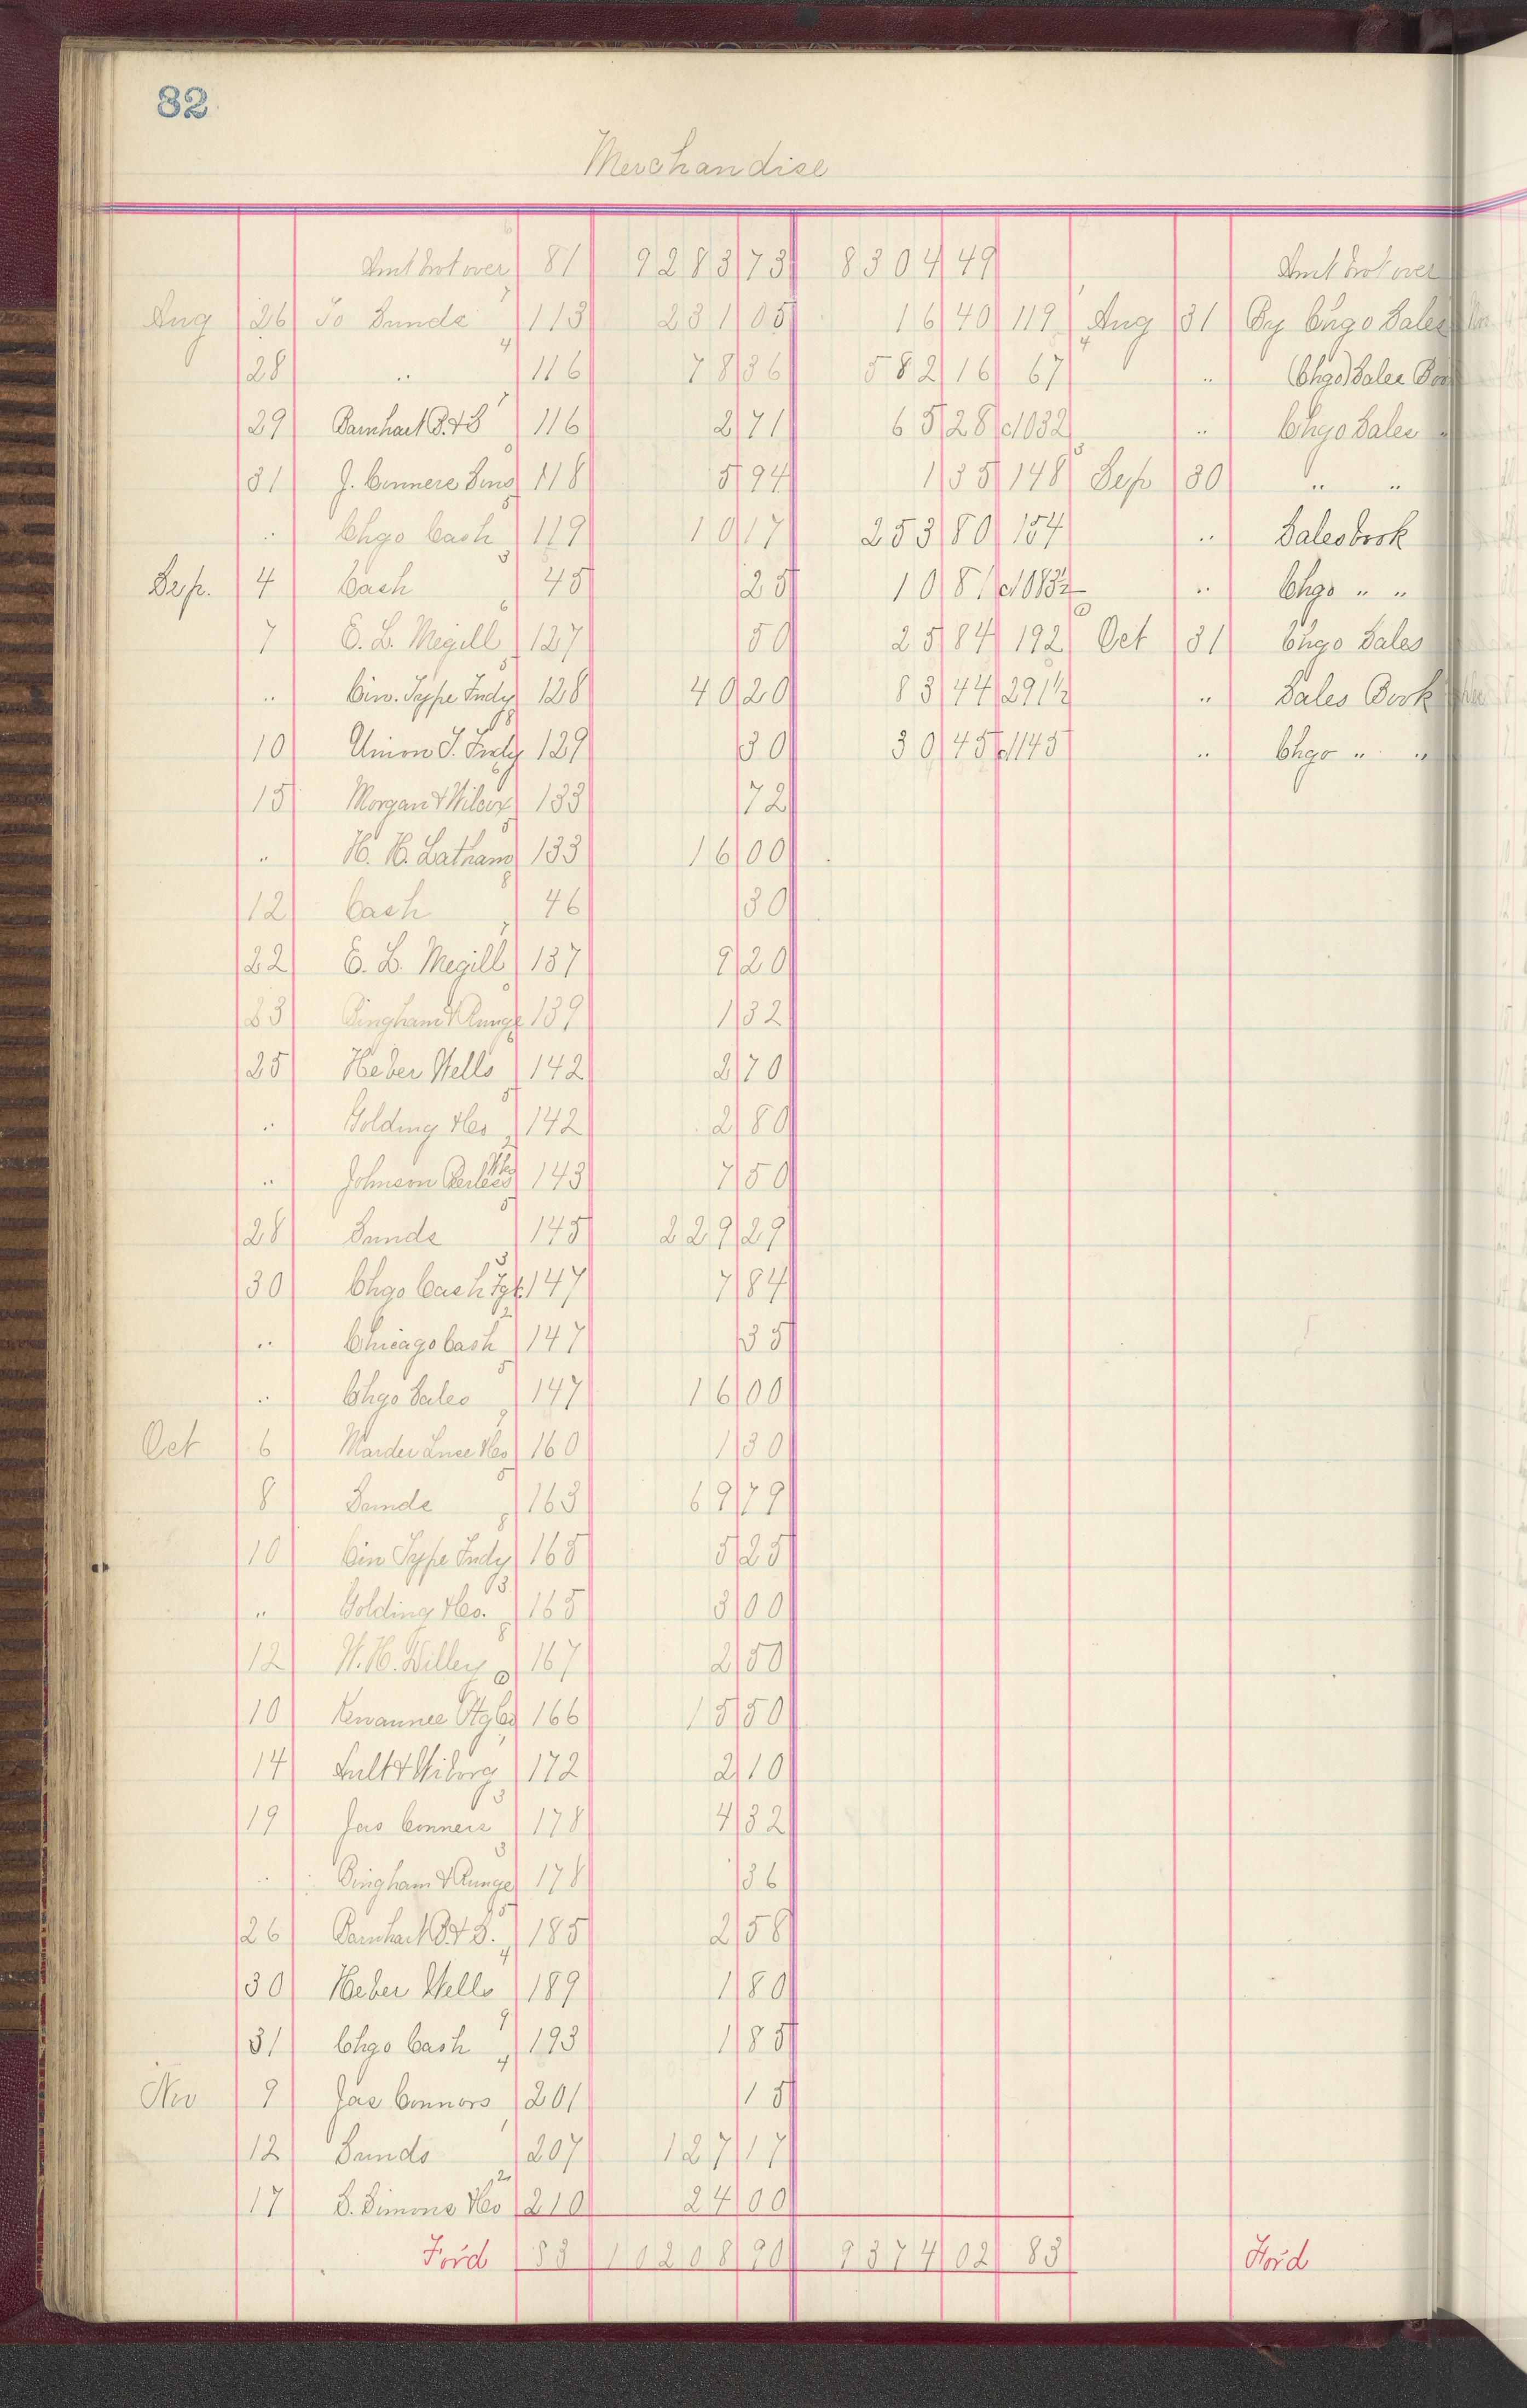 82
Merchandise
Amt brot over 81 9283 73 8304 49 Amt brot over
Aug 26 To Sunds 113 231 05 16 40 119 Aug 31 By Chgo Sales
28 " 116 78 36 582 16 67 " (Chgo) Sales Boo
29 Barnhart B. & S 116 2 71 65 28 c1032 " Chgo Sales "
31 J. Conners Sons 118 5 94 1 35 148 Sep 30 " "
" Chgo Cash 119 10 17 253 80 154 " Salesbook
Sep. 4 Cash 45 25 10 81 c1083½ " Chgo " "
7 E. L. Megill 127 50 25 84 192 Oct 31 Chgo Sales
" Cin. Type Fndy 128 40 20 83 44 291½ " Sales Book
10 Union T. Fndy 129 30 30 45 c1145 " Chgo " "
15 Morgan & Wilcox 133 72
" H. H. Latham 133 16 00
12 Cash 46 30
22 E. L. Megill 137 9 20
23 Bingham & Runge 139 1 32
25 Heber Wells 142 2 70
" Golding & Co 142 2 80
" Johnson Peerless Wks 143 7 50
28 Sunds 145 229 29
30 Chgo Cash Fgt. 147 7 84
" Chicago Cash 147 35
" Chgo Sales 147 16 00
Oct 6 Marder Luse & Co 160 1 30
8 Sunds 163 69 79
10 Cin Type Fndy 165 5 25
" Golding & Co. 165 3 00
12 W. H. Dilley 167 2 50
10 Kewannee Mfg Co 166 15 50
14 Ault & Wiborg 172 2 10
19 Jas Conners 178 4 32
" Bingham & Runge 178 36
26 Barnhart B. & S. 185 2 58
30 Heber Wells 189 1 80
31 Chgo Cash 193 1 85
Nov 9 Jas Connors 201 15
12 Sunds 207 127 17
17 S. Simons & Co 210 24 00
For'd 83 10208 90 9374 02 83 For'd